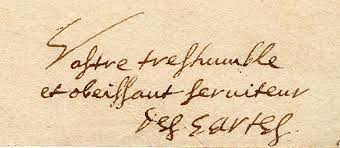 Vostre treshumble
et obeissant seruiteur
Des Cartes.